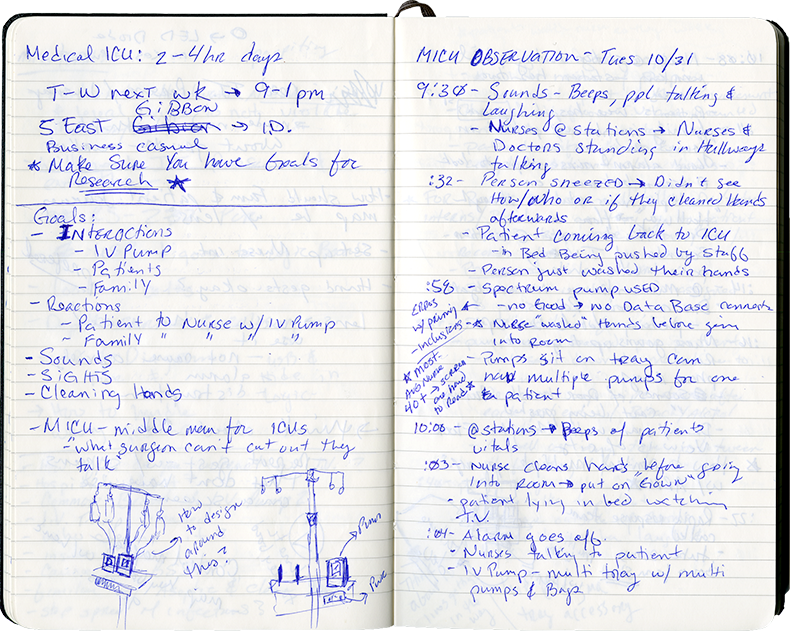 Medical ICU: 2-4hr days
T-W next wk → 9-1pm
GiBBon
5 East → I.D.
Business casual
* Make Sure You have Goals for
Research *
Goals:
- Interactions
- IV Pump
- Patients
- Family
- Reactions
- Patient to Nurse w/ IV Pump
- Family " " " "
- Sounds
- SiGHtS
- Cleaning Hands
- MICU - middle man for ICUs
- "what surgeon can't cut out they
talk"
How
to design
around
this?
Pump
MICU OBSERVATION - Tues 10/31
9:30 - Sounds - Beeps, ppl talking &
Laughing
- Nurses @ stations → Nurses &
Doctors standing in Hallways
talking
:32 - Person sneezed → Didn't see
How/who or if they cleaned Hands
afterwards
- Patient coming back to ICU
- in Bed Being pushed by Staff
- Person just washed their hands
:58 - Spectrum pump USED
- no Good → no Data Base
- * Nurse "washed" Hands before going
into Room
- Pumps sit on tray can
multiple pumps for one
patient
ERRORS
w/
* most
Nurse
40+ → screen
are hard
to Read *
10:00 - @stations → Beeps of patients
vitals
:03 - Nurse cleans hands before going
into Room → put on "Gown"
- patient lying in bed watching
T.V.
:04 - Alarm goes off.
- Nurses talking to patient
- IV Pump - multi tray w/ multi
pumps & Bags